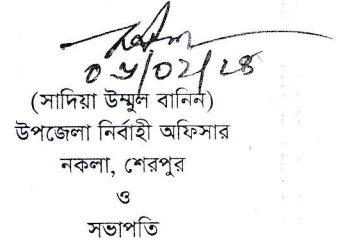 (সাদিয়া উম্মুল বানিন)
উপজেলা নির্বাহী অফিসার
নকলা, শেরপুর
ও
সভাপতি